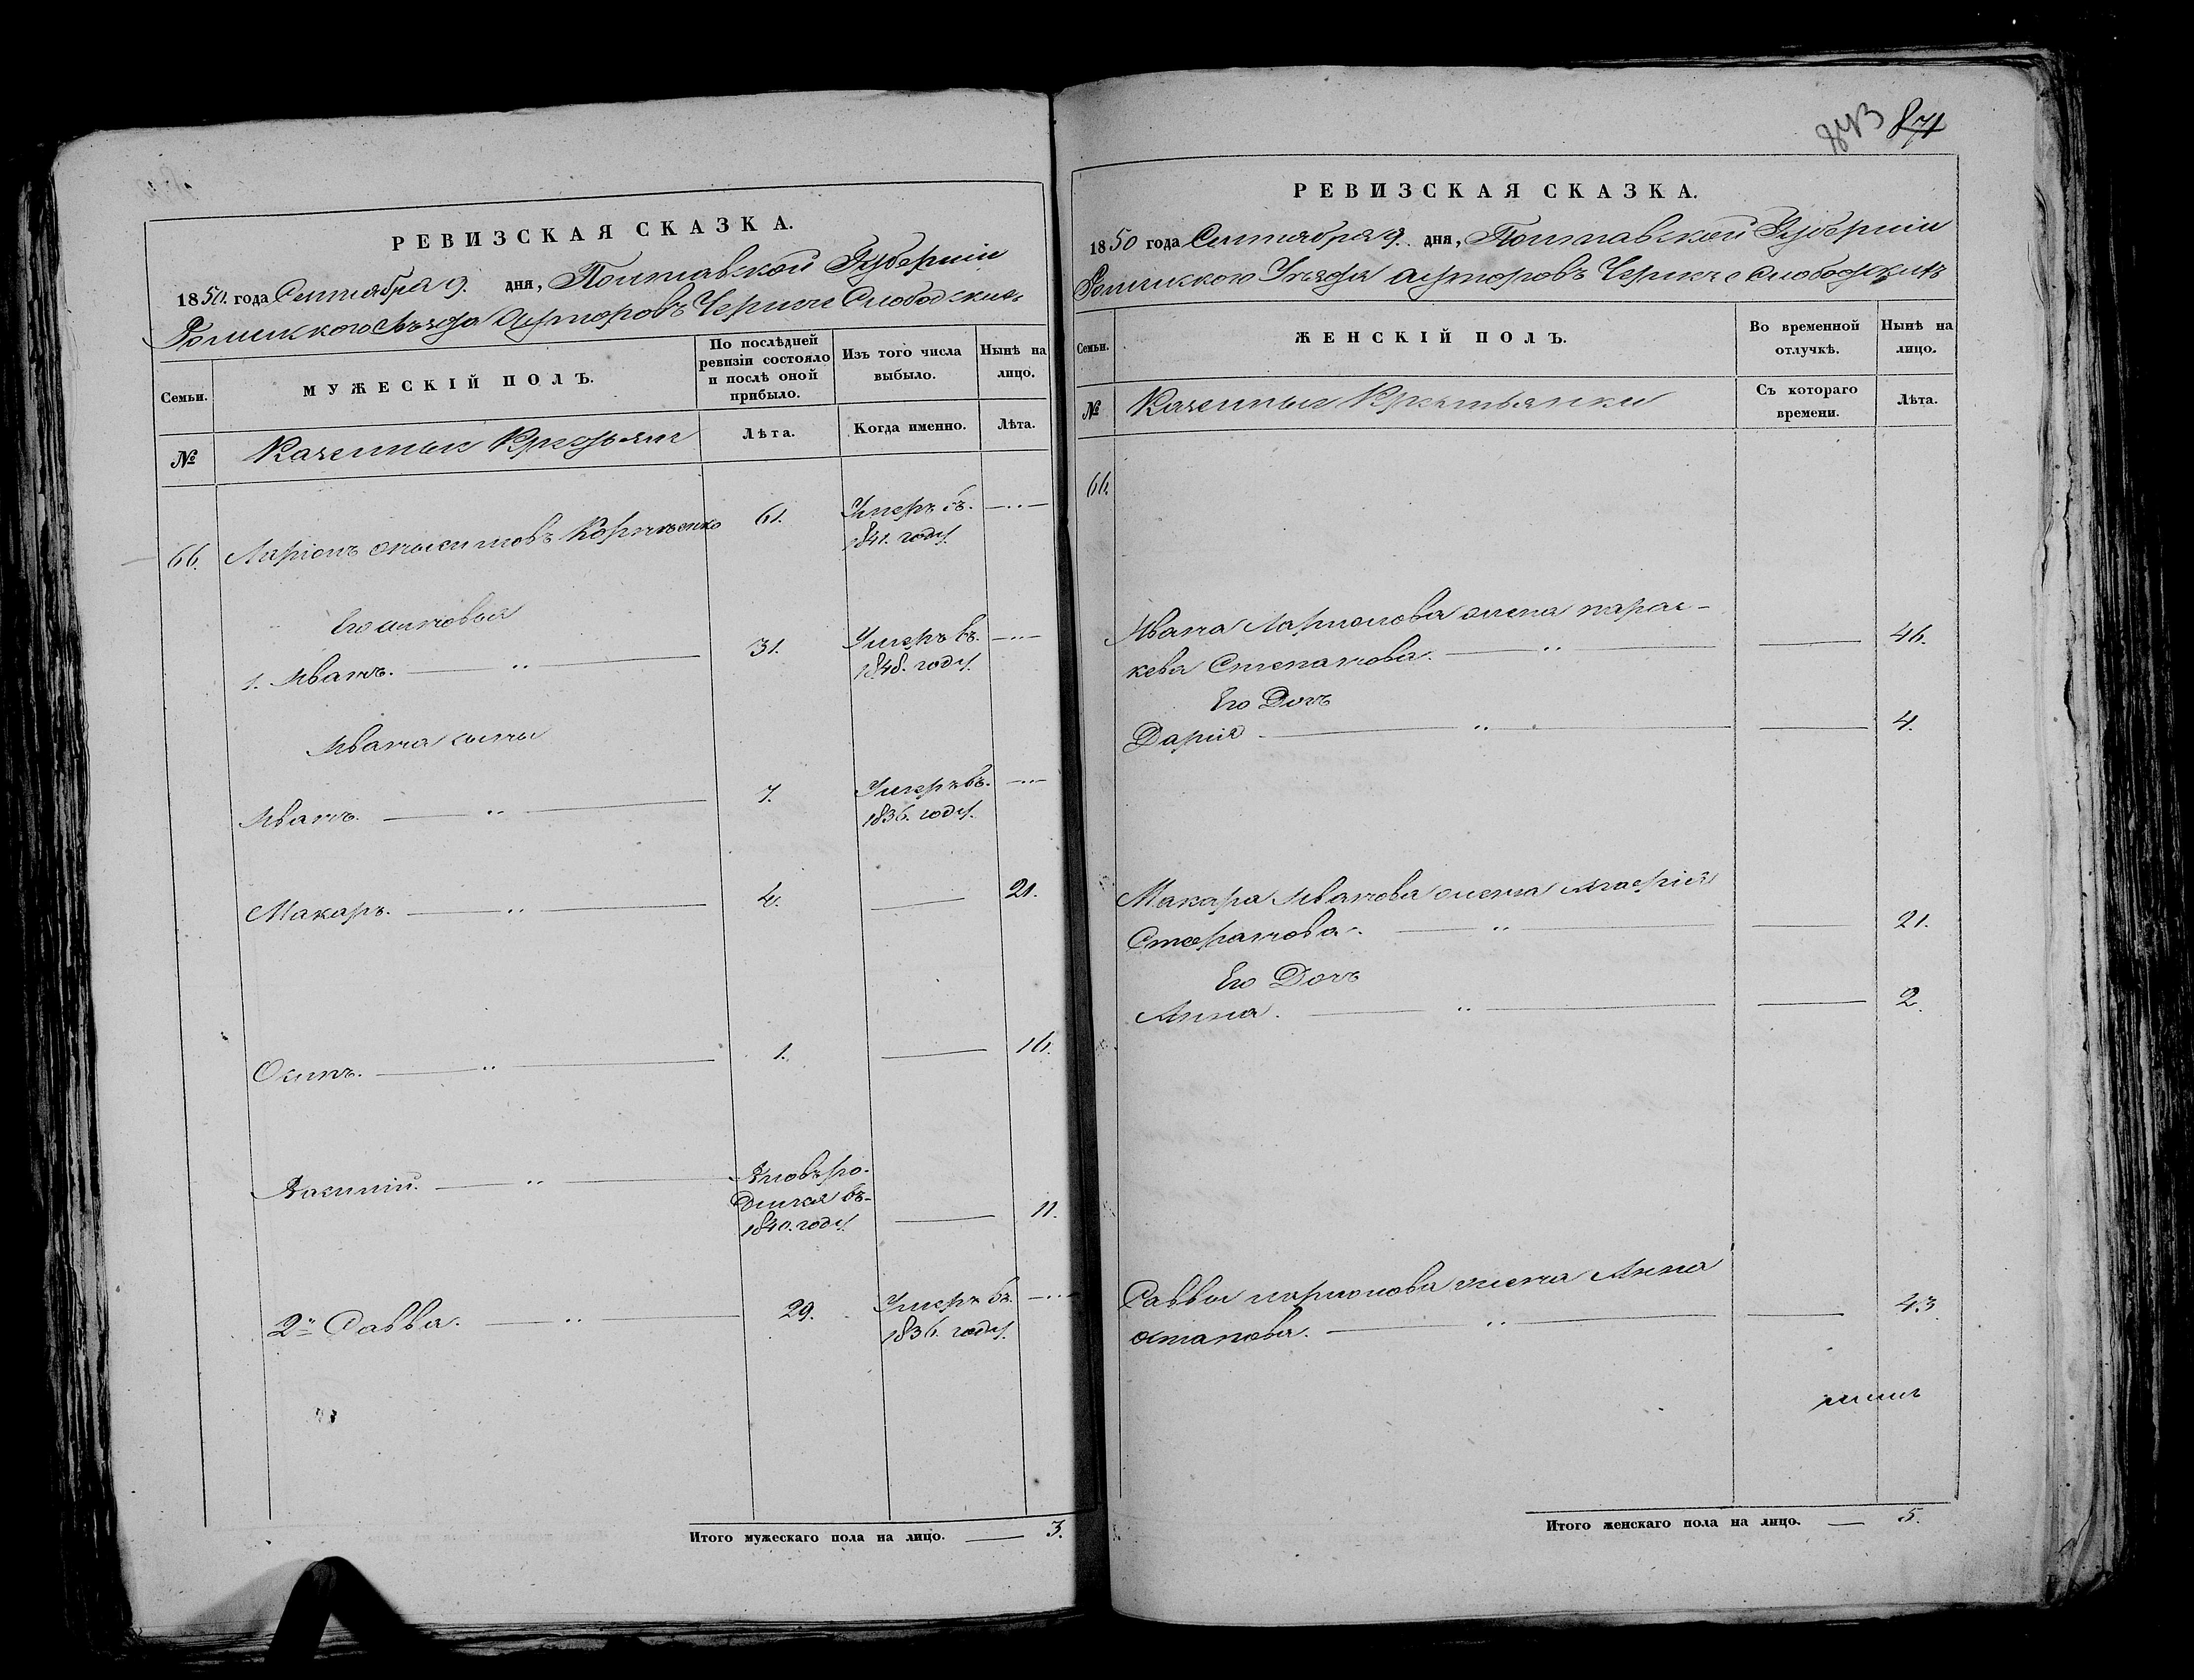 РЕВИЗСКАЯ СКАЗКА.
1850. года Сентября 9. дня, Полтавской Губерніи
Роменского Уезда Хуторовъ Чернече Слободскихъ
Семьи.
МУЖЕСКІЙ ПОЛЪ.
По послѣдней ревизіи состояло и послѣ оной прибыло.
Изъ того числа выбыло.
Нынѣ на лицо.
№
Казенныи
Лѣта.
Когда именно.
Лѣта.
66. Ларіонъ Онысимовъ 61. Умеръ въ. 1841. году.
Его сыновья
1. Иванъ. 31. Умеръ въ. 1848. году.
Ивана сыны
Иванъ. 7. Умеръ въ. 1836. году.
Макаръ. 4. 21.
Осипъ. 1. 16.
Василій. Вновь ро-
дился въ-
1840. году. 11.
2й Савва. 29. Умеръ въ. 1836. году.
Итого мужескаго пола на лицо. 3.
843 871
РЕВИЗСКАЯ СКАЗКА.
1850 года Сентября 9. дня, Полтавской Губерніи
Роменскою Уезда Хуторовъ Чернече Слободскихъ
Семьи.
ЖЕНСКІЙ ПОЛЪ.
Во временной отлучкѣ.
Нынѣ на лицо.
№
Казенные Крестьянки
Съ котораго времени.
Лѣта.
66.
Ивана Ларионова жена парас-
кева Степанова. 46.
Его Дочь
Дария 4.
Макара Иванова жена
21.
Его Дочь
Анна. 2.
Саввы ларионова жена Анна
остапова. 43
Итого женскаго пола на лицо. 5.